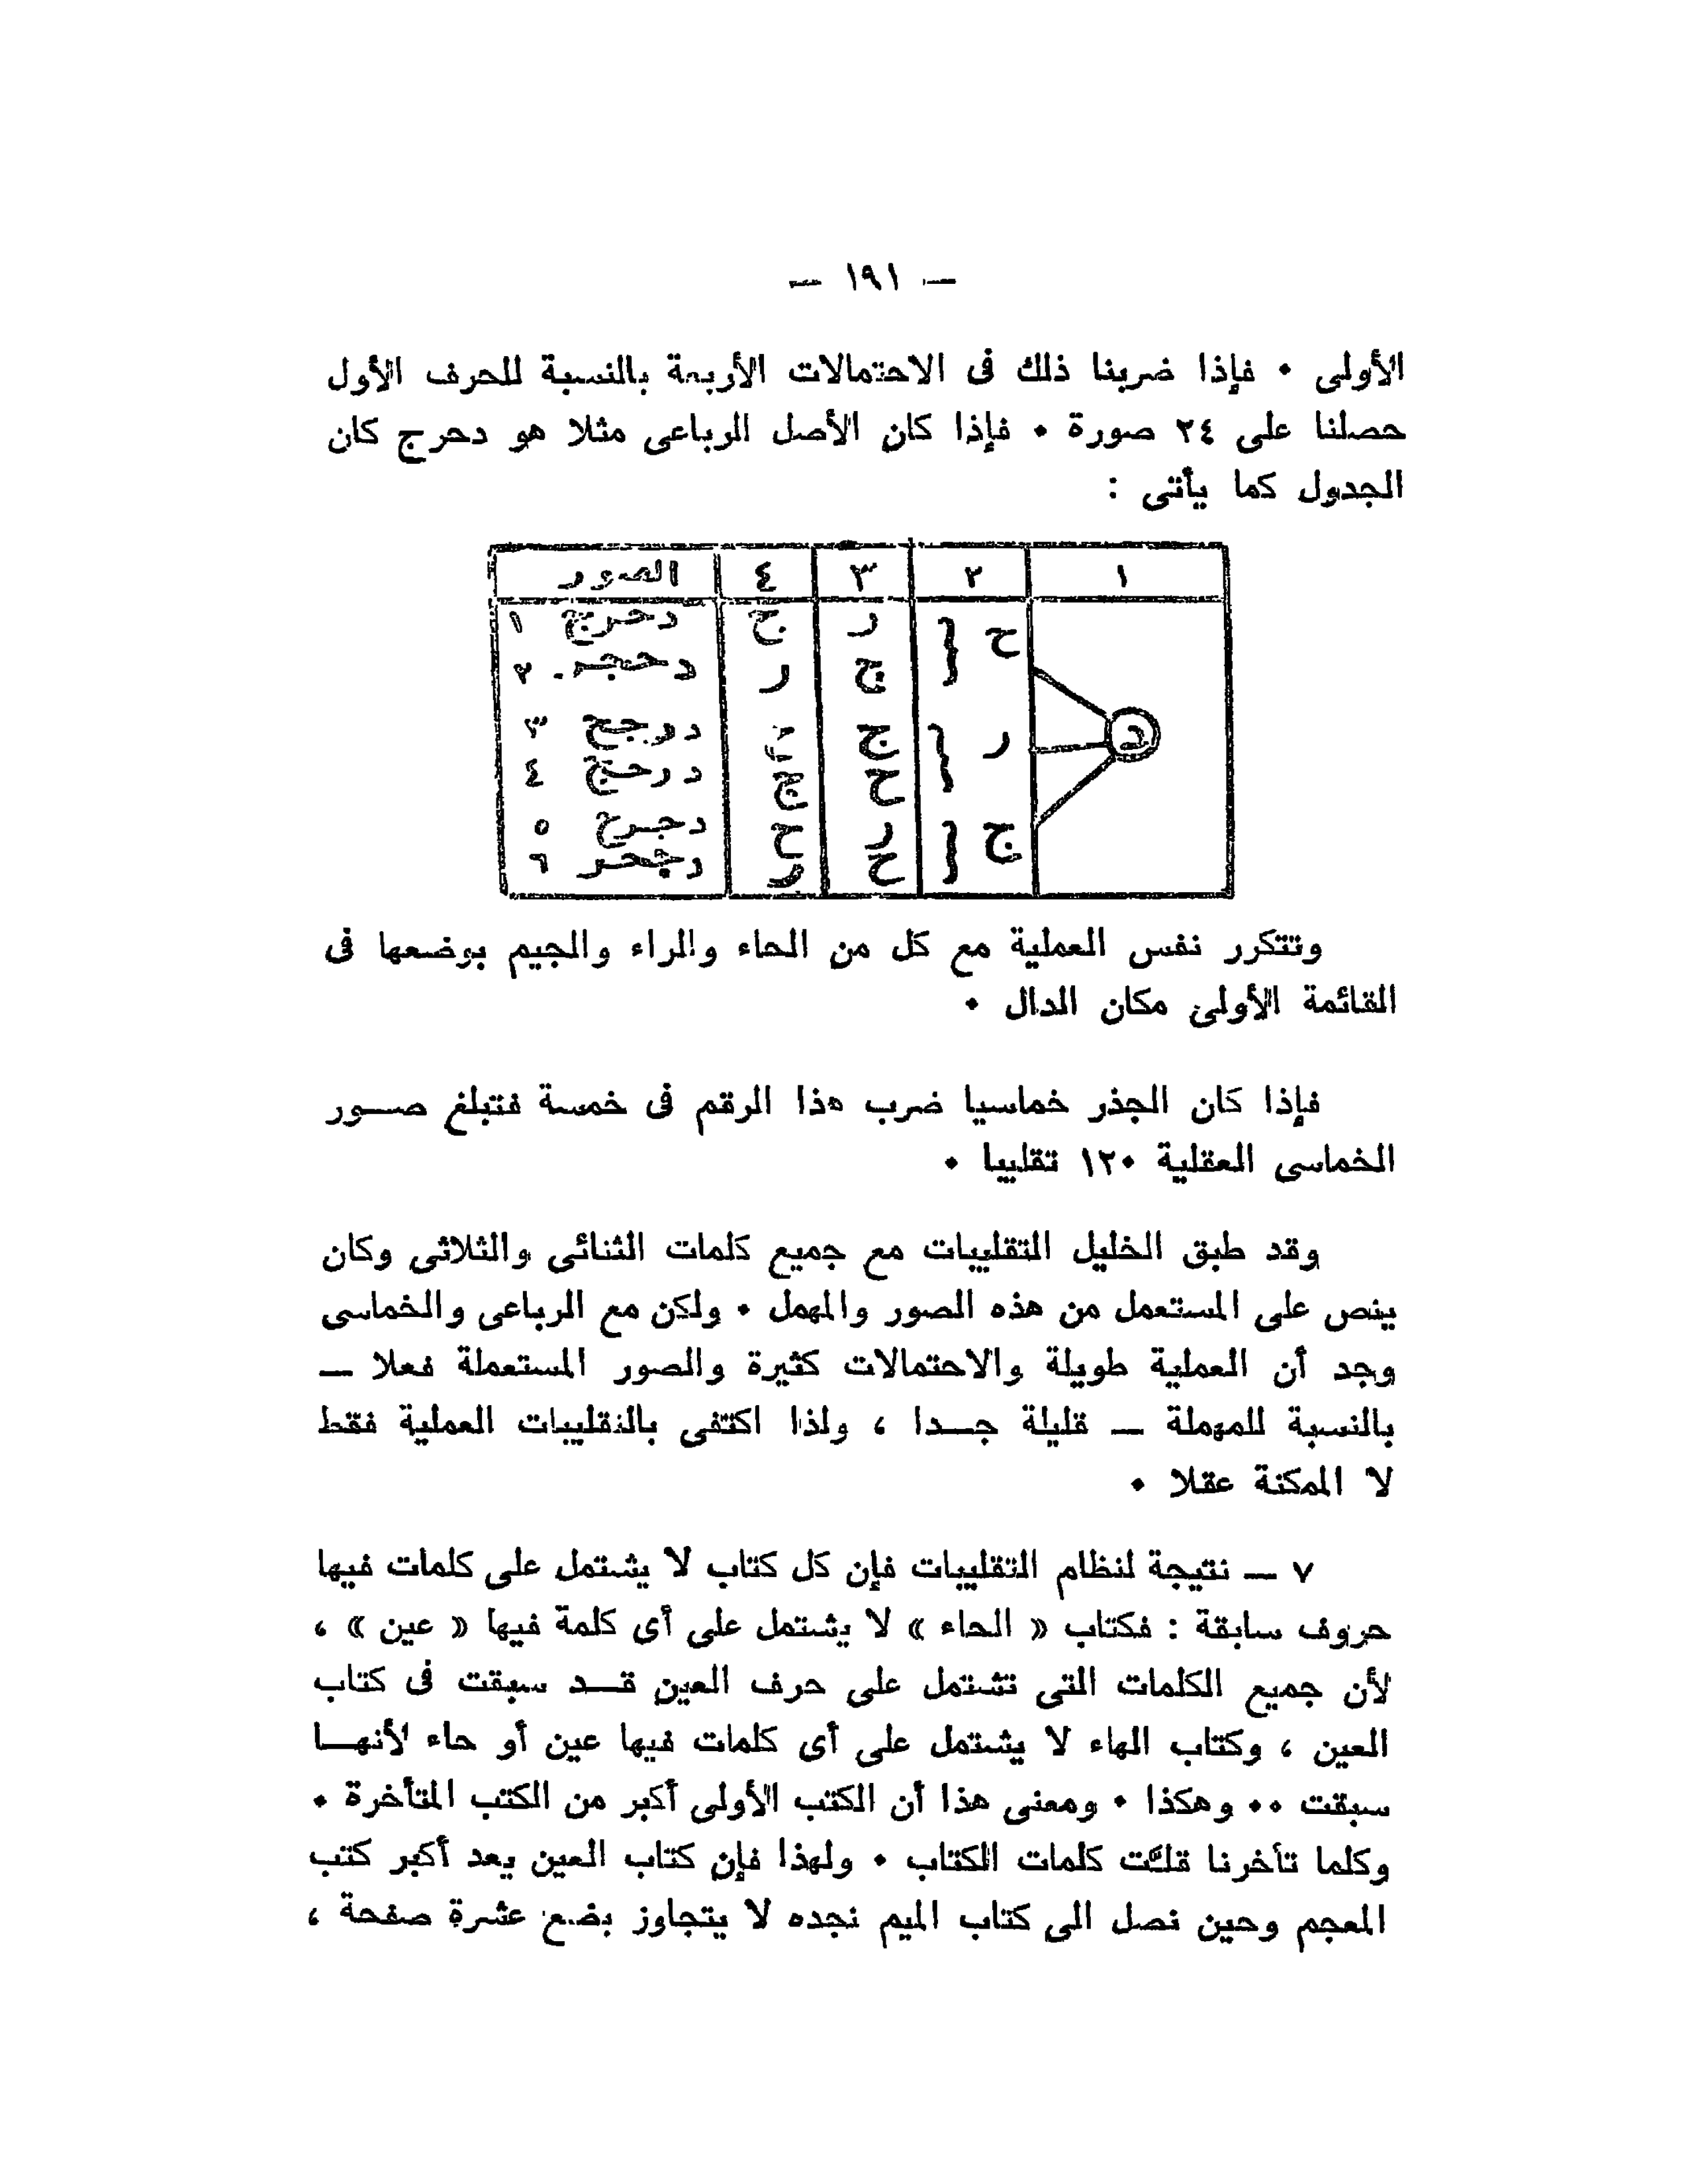 — ١٩١ —
الأولى ٠ فإذا ضربنا ذلك فى الاحتمالات الأربعة بالنسبة للحرف الأول
حصلنا على ٢٤ صورة ٠ فإذا كان الأصل الرباعى مثلا هو دحرج كان
الجدول كما يأتى :
١ ٢ ٣ ٤ الصور
د
ح ر ج دحرج ١
ج ر دحجر ٢
ر ج ح درجح ٣
ح ج درحج ٤
ج ر ح دجرح ٥
ح ر دجحر ٦
وتتكرر نفس العملية مع كل من الحاء والراء والجيم بوضعها فى
القائمة الأولى مكان الدال ٠
فإذا كان الجذر خماسيا ضرب هذا الرقم فى خمسة فتبلغ صـــور
الخماسى العقلية ١٢٠ تقليبا ٠
وقد طبق الخليل التقليبات مع جميع كلمات الثنائى والثلاثى وكان
ينص على المستعمل من هذه الصور والمهمل ٠ ولكن مع الرباعى والخماسى
وجد أن العملية طويلة والاحتمالات كثيرة والصور المستعملة فعلا —
بالنسبة للمهملة — قليلة جـــدا ، ولذا اكتفى بالتقليبات العملية فقط
لا الممكنة عقلا ٠
٧ — نتيجة لنظام التقليبات فإن كل كتاب لا يشتمل على كلمات فيها
حروف سابقة : فكتاب « الحاء » لا يشتمل على أى كلمة فيها « عين » ،
لأن جميع الكلمات التى تشتمل على حرف العين قـــد سبقت فى كتاب
العين ، وكتاب الهاء لا يشتمل على أى كلمات فيها عين أو حاء لأنهـــا
سبقت ٠٠ وهكذا ٠ ومعنى هذا أن الكتب الأولى أكبر من الكتب المتأخرة ٠
وكلما تأخرنا قلَّت كلمات الكتاب ٠ ولهذا فإن كتاب العين يعد أكبر كتب
المعجم وحين نصل الى كتاب الميم نجده لا يتجاوز بضع عشرة صفحة ،